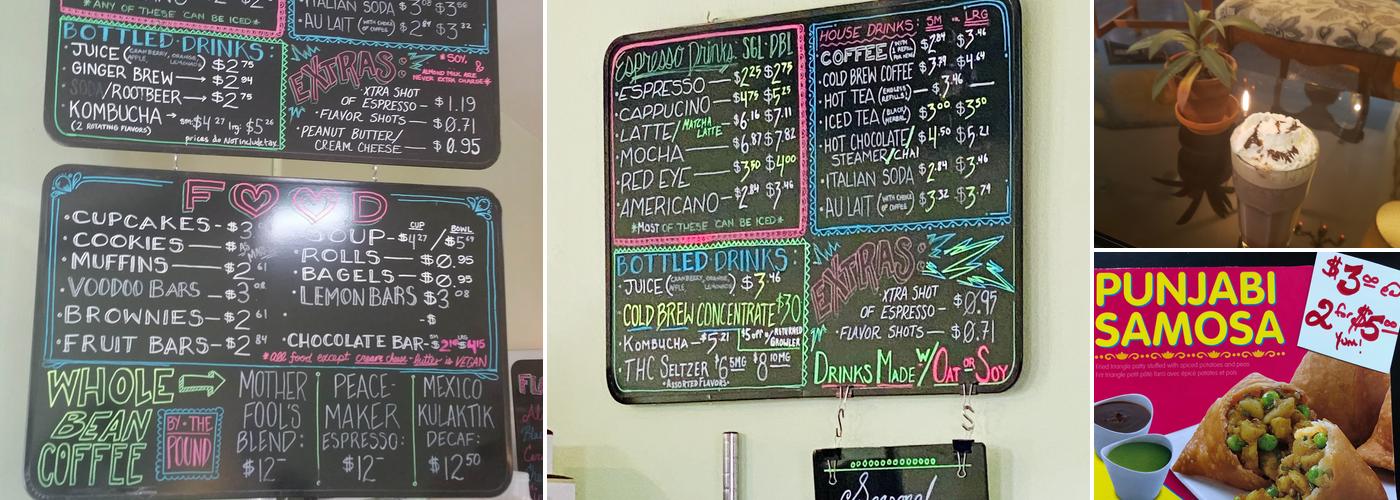 *ANY OF THESE CAN BE ICED*
BOTTLED DRINKS:
·JUICE (CRANBERRY, ORANGE, APPLE, LEMONADE) $2.75
·GINGER BREW → $2.84
·SODA/ROOTBEER → $2.75
·KOMBUCHA → sm: $4.27 lrg: $5.26
(2 ROTATING FLAVORS)
prices do NOT include tax
·ITALIAN SODA $3.08 $3.56
·AU LAIT (WITH CHOICE OF COFFEE) $2.84 $3.32
EXTRAS:
*SOY, &
ALMOND MILK ARE
NEVER EXTRA CHARGE*
XTRA SHOT
OF ESPRESSO - $1.19
·FLAVOR SHOTS - $0.71
·PEANUT BUTTER/
CREAM CHEESE - $0.95
FOOD
·CUPCAKES - $3
·COOKIES
·MUFFINS — $2.61
·VOODOO BARS - $3.08
·BROWNIES - $2.61
·FRUIT BARS - $2.84
CUP BOWL
SOUP - $4.27 / $5.69
·ROLLS — $0.95
·BAGELS — $0.95
·LEMON BARS $3.08
-$
·CHOCOLATE BAR-
*all food except cream cheese + butter is VEGAN
WHOLE
BEAN
COFFEE
BY · THE
POUND
MOTHER
FOOL'S
BLEND:
$12–
PEACE-
MAKER
ESPRESSO:
$12–
MEXICO
KULAKTIK
DECAF:
$12.50
Espresso Drinks: SGL·DBL
·ESPRESSO — $2.25 $2.75
·CAPPUCINO — $4.75 $5.25
·LATTE/MATCHA LATTE — $6.16 $7.11
·MOCHA — $6.87 $7.82
·RED EYE — $3.50 $4.00
·AMERICANO — $2.84 $3.46
*MOST OF THESE CAN BE ICED*
BOTTLED DRINKS:
·JUICE (CRANBERRY, ORANGE, APPLE, LEMONADE) $3.46
·COLD BREW CONCENTRATE $30
$5 off w/ RETURNED GROWLER
·KOMBUCHA → $5.21
·THC SELTZER $6 5MG $8 10MG
·ASSORTED FLAVORS·
HOUSE DRINKS: SM or LRG
·COFFEE $2.84 $3.46
·COLD BREW COFFEE $3.79 $4.69
·HOT TEA (ENDLESS REFILLS!) — $3.46 —
·ICED TEA (BLACK/HERBAL) $3.00 $3.50
·HOT CHOCOLATE/
STEAMER/CHAI $4.50 $5.21
·ITALIAN SODA $2.84 $3.46
·AU LAIT (WITH CHOICE OF COFFEE) $3.32 $3.79
EXTRAS:
·XTRA SHOT
OF ESPRESSO — $0.95
·FLAVOR SHOTS — $0.71
DRINKS MADE W/ OAT OR SOY
Seasonal
PUNJABI
SAMOSA
Fried triangle patty stuffed with spiced potatoes and peas
Frit triangle petit pâte farcis avec épicé potates et pois
$3.00
2 for $5.00
Yum!